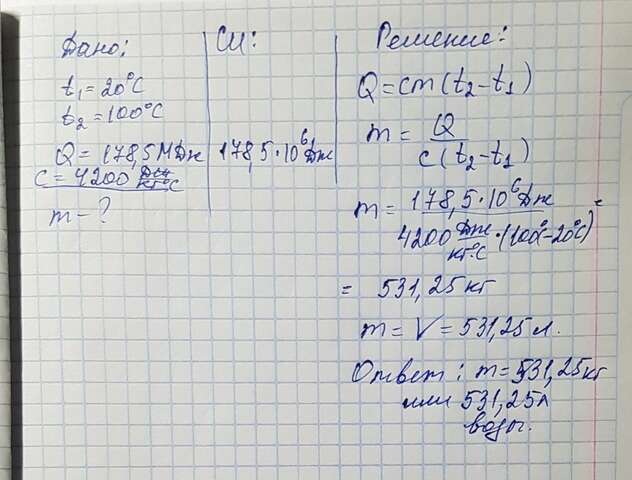 Дано:
t₁=20°C
t₂=100°C
Q=178,5МДж
c=4200 Дж/кг°C
m-?
СИ:
178,5·10⁶Дж
Решение:
Q=cm(t₂-t₁)
m= Q/c(t₂-t₁)
m= 178,5·10⁶Дж / 4200 Дж/кг°C·(100°-20°C) =
= 531,25 кг
m=V=531,25 л.
Ответ: m=531,25кг
или 531,25л
воды.